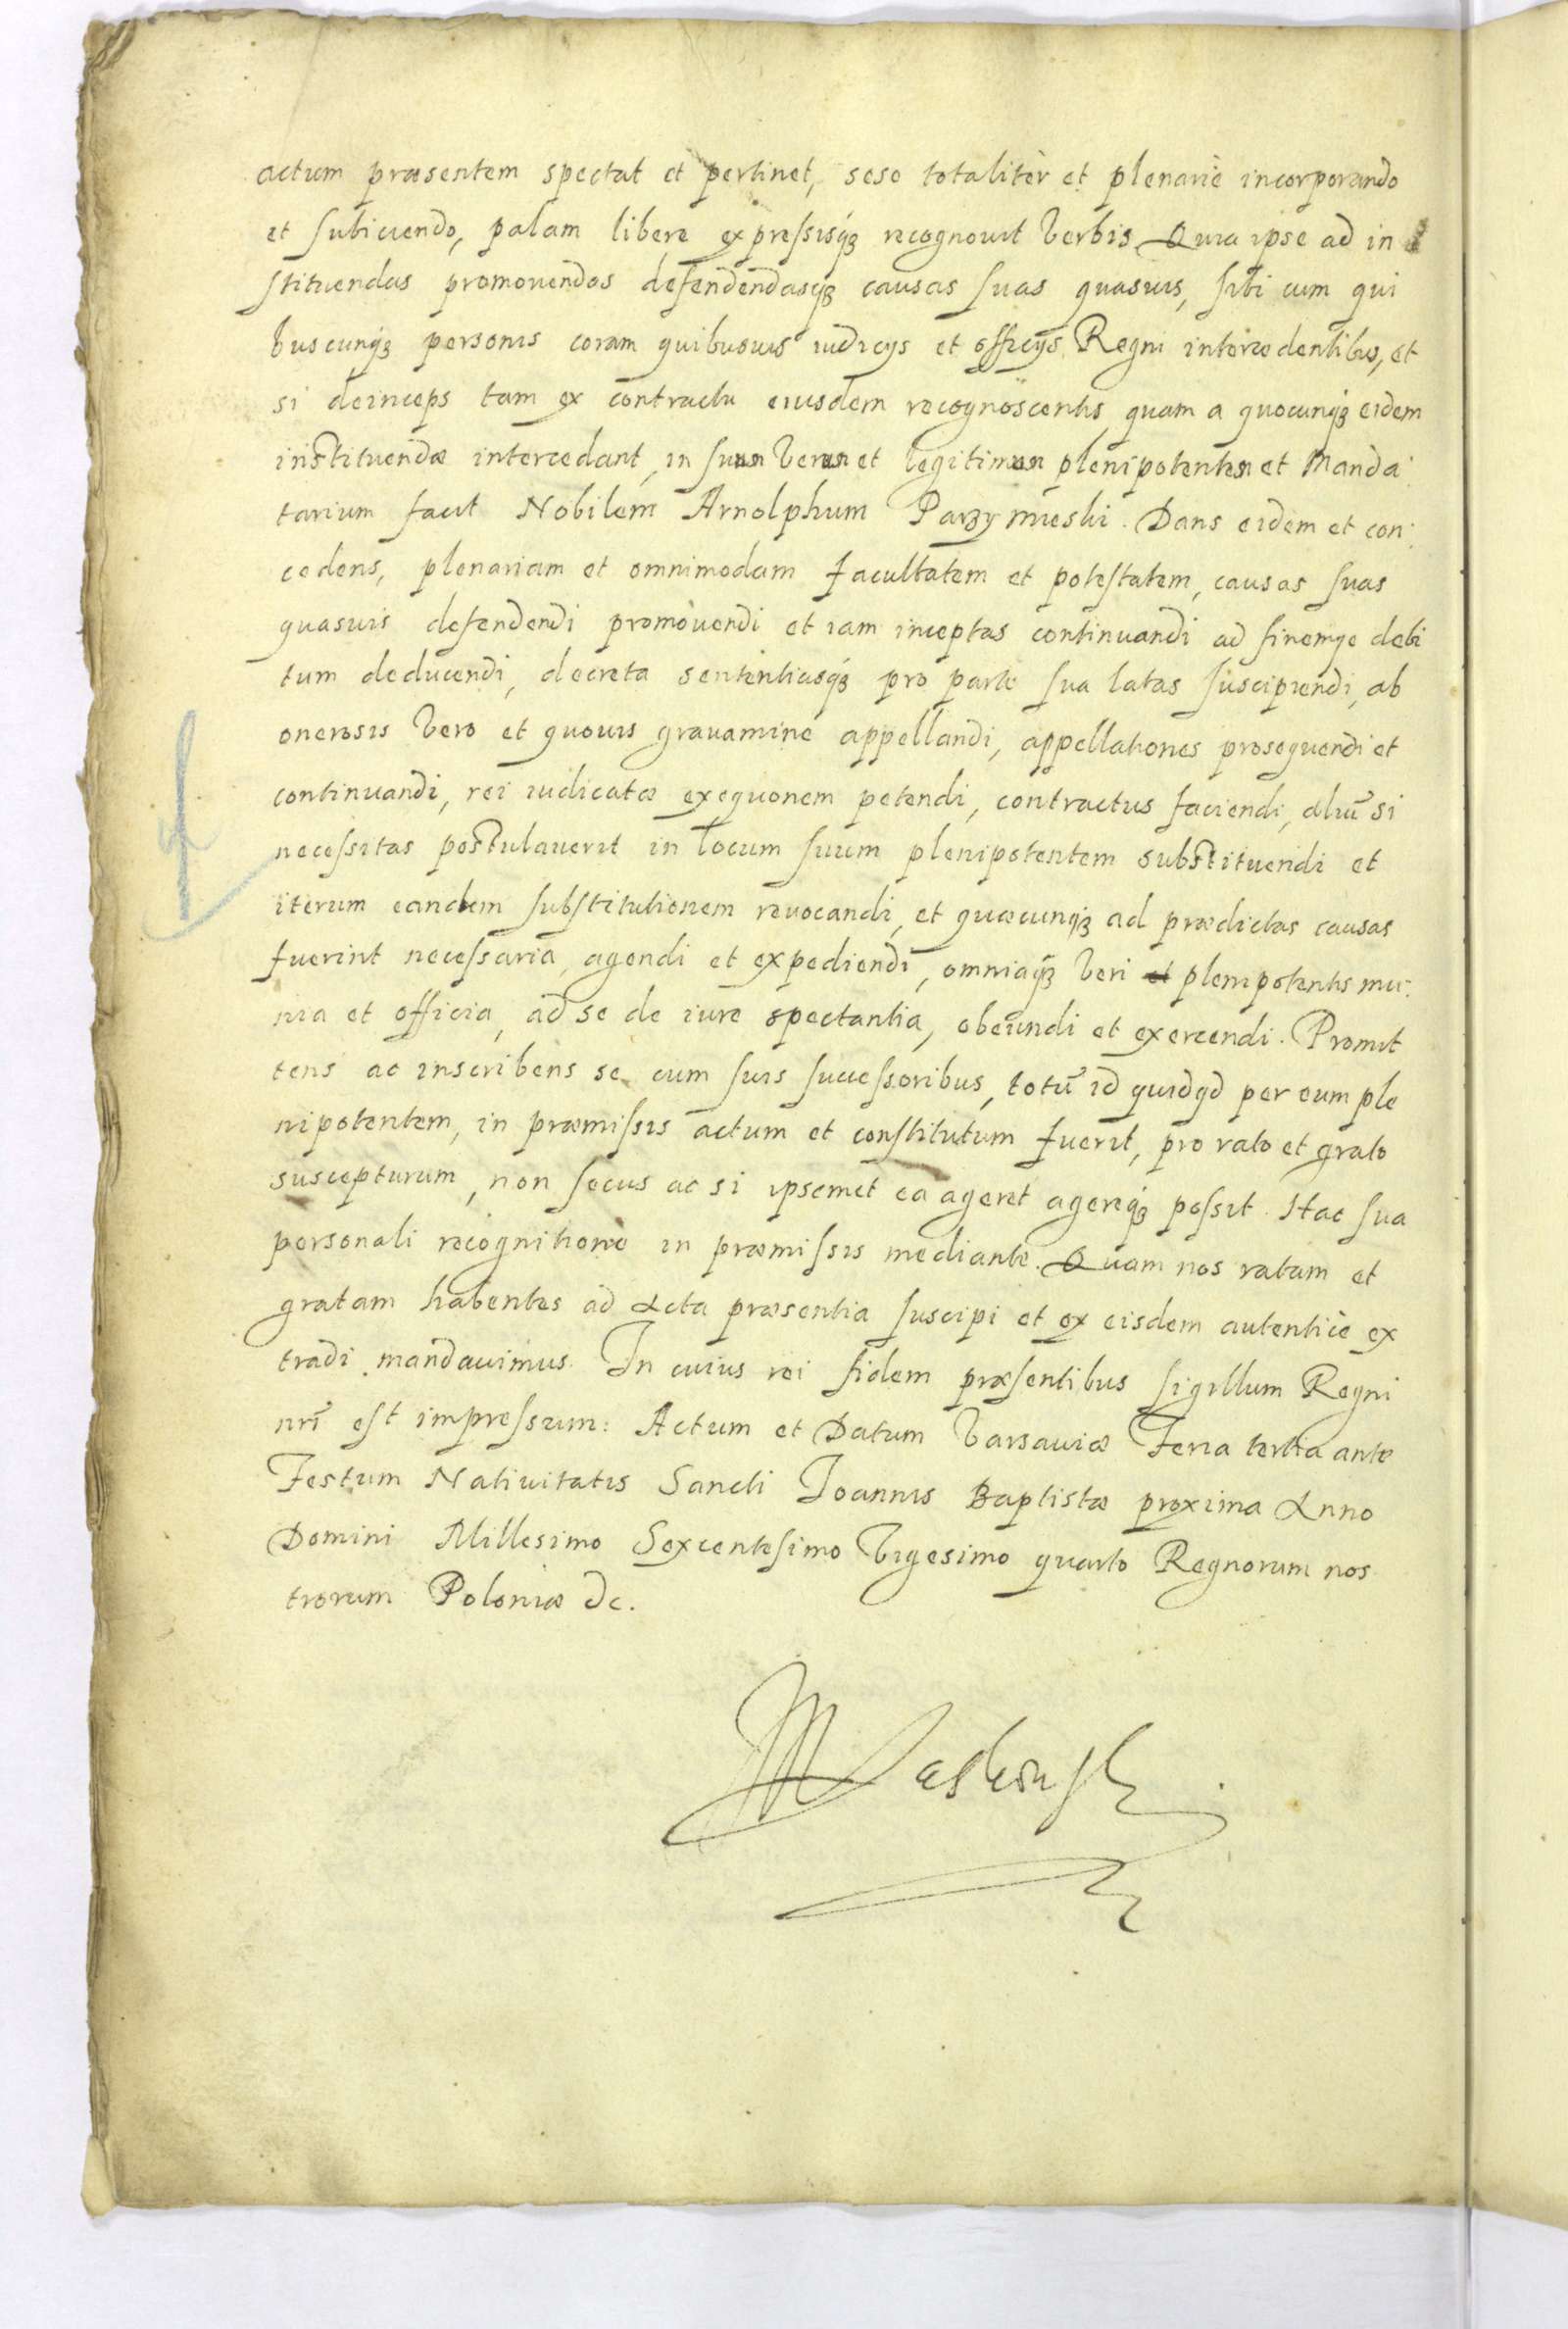 actum præsentem spectat et pertinet, sese totalitèr et plenariè incorporando
et subiiciendo, palam libere expressisq́ʒ recognouit Verbis. Quia ipse ad in
stituendas promouendas defendendasq́ʒ causas suas quasuis, sibi cum qui
buscunq́ʒ personis coram quibusuis iudicÿs et officÿs Regni intercedentibus, et
si deinceps tam ex contractu eiusdem recognoscentis quam a quocunq́ʒ eidem
instituendæ intercedant, in suum Verum et legitimum plenipotentem et Manda
tarium facit Nobilem Arnolphum Parzymieski. Dans eidem et con
cedens, plenariam et omnimodam facultatem et potestatem, causas suas
quasuis defendendi promouendi et iam inceptas continuandi ad finemqe debi
tum deducendi, decreta sententiasq́ʒ pro parte sua latas suscipiendi, ab
onerosis Vero et quouis grauamine appellandi, appellationes prosequendi et
continuandi, rei iudicatæ exequonem petendi, contractus faciendi, aliū si
necessitas postulauerit in locum suum plenipotentem substituendi et
iterum eandem substitutionem reuocandi, et quæcunq́ʒ ad prædictas causas
fuerint necessaria, agendi et expediendi, omniaq́ʒ Veri et plenipotentis mu
nia et officia, ad se de iure spectantia, obeundi et exercendi. Promit
tens ac inscribens se cum suis successoribus, totū id quidqd per eum ple
nipotentem, in præmissis actum et constitutum fuerit, pro rato et grato
suscepturum, non secus ac si ipsemet ea ageret agereq́ʒ possit. Hac sua
personali recognitione in præmissis mediante. Quam nos ratam et
gratam habentes ad Acta præsentia suscipi et ex eisdem autenticè ex
tradi mandauimus. In cuius rei fidem præsentibus sigillum Regni
nrī est impressum: Actum et Datum Varsauiæ Feria tertia ante
Festum Natiuitatis Sancti Joannis Baptistæ proxima Anno
Domini Millesimo Sexcentesimo Vigesimo quarto Regnorum nos
trorum Poloniæ &c.